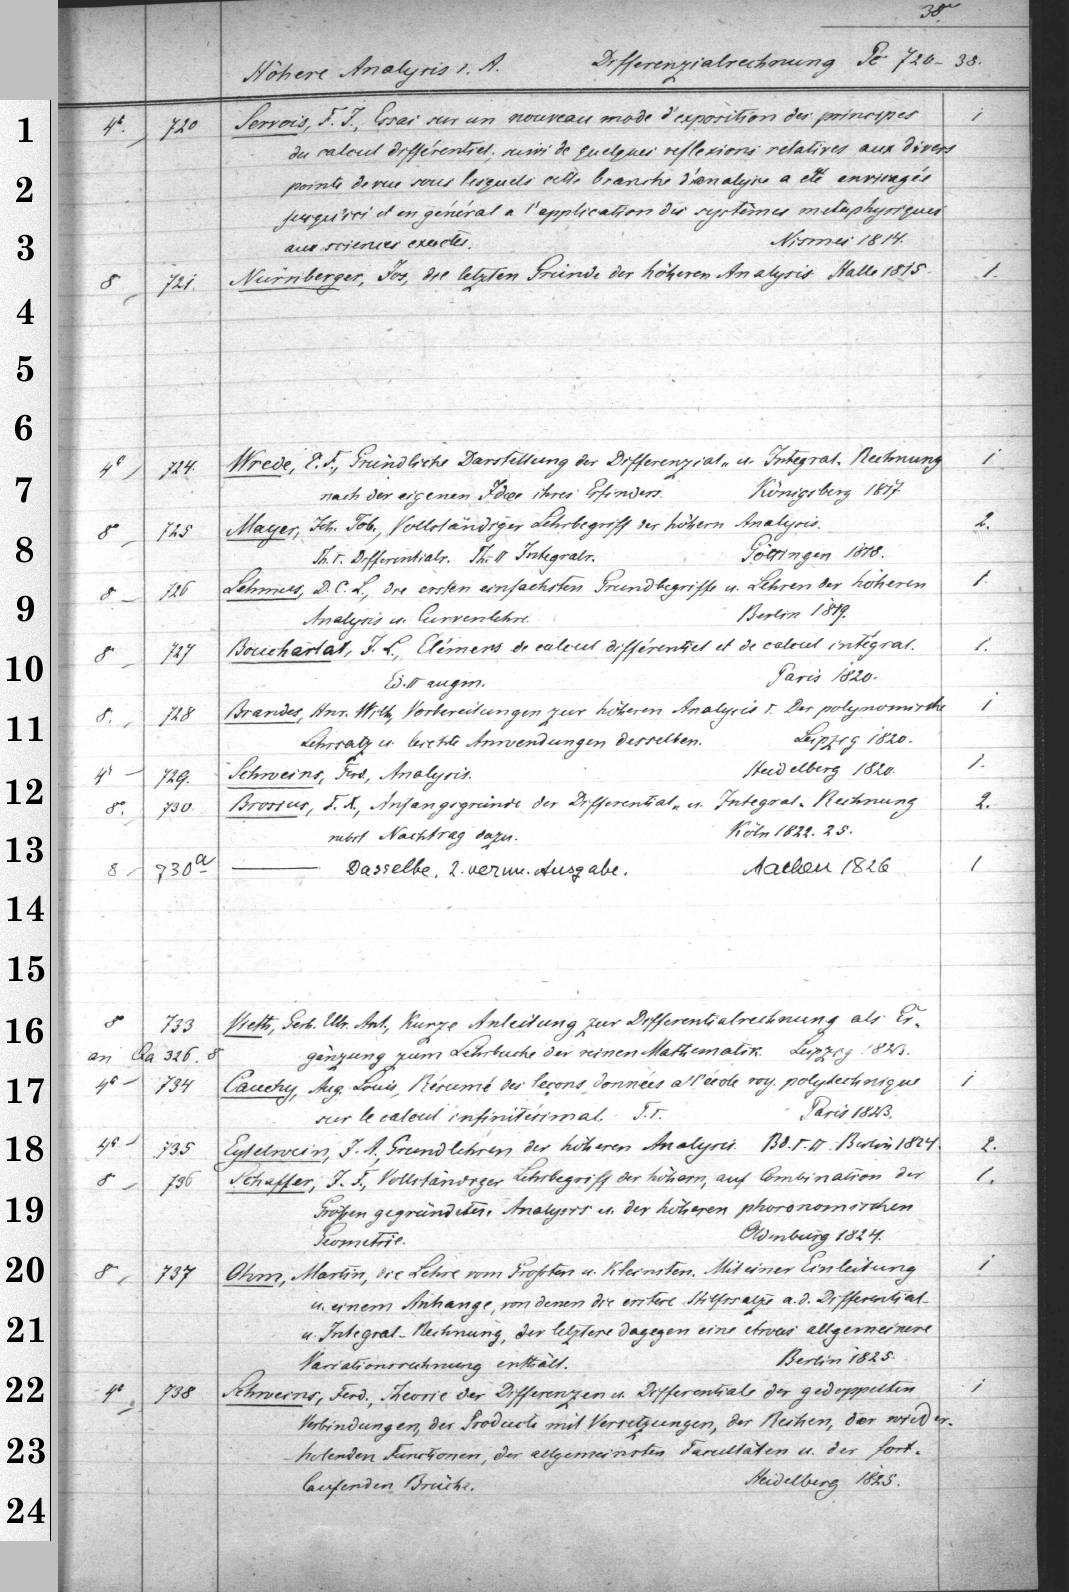 38
Höhere Analysis i. A. Differenzialrechnung Pc 720-38.
1
4° 720 Servois, F. J., Essai sur un nouveau mode d'exposition des principes 1
du calcul différentiel, suivi de quelques reflexions relatives aux divers
2
points de vue sous lesquels cette branche d'analyse a été envisagée
jusqu'ici et en général a l'application des systèmes metaphysiques
3
aux sciences exactes. Nismes 1814.
8 721. Nürnberger, Jos, die letzten Gründe der höheren Analysis Halle 1815. 1.
4
5
6
4° 724. Wrede, E. F., Gründliche Darstellung der Differenzial- u. Integral-Rechnung 1
7
nach der eigenen Idee ihres Erfinders. Königsberg 1817
8° 725 Mayer, Joh. Tob., Vollständiger Lehrbegriff der höhern Analysis. 2.
8
Th. I. Differentialr. Th. II Integralr. Göttingen 1818.
8. 726 Lehmus, D. C. L., die ersten einfachsten Grundbegriffe u. Lehren der höheren 1.
9
Analysis u. Curvenlehre. Berlin 1819.
8 727 Boucharlat, J. L., Elémens de calcul différentiel et de calcul intégral. 1.
10
Ed. II augm. Paris 1820.
8. 728 Brandes, Hnr. Wilh, Vorbereitungen zur höheren Analysis I. Der polynomische 1
11
Lehrsatz u. leichte Anwendungen desselben. Leipzig 1820.
4° 729. Schweins, Ferd, Analysis. Heidelberg 1820. 1.
12
8°. 730. Brosius, F. X., Anfangsgründe der Differential- u. Integral-Rechnung 2.
nebst Nachtrag dazu. Köln 1822. 25.
13
8 730a Dasselbe, 2. verm. Ausgabe. Aachen 1826 1
14
15
8° 733 Vieth, Gerh. Ulr. Ant., Kurze Anleitung zur Differentialrechnung als Er-
16
an Qa 326. 8 gänzung zum Lehrbuche der reinen Mathematik. Leipzig 1823.
17
4° 734 Cauchy, Aug. Louis, Résumé des leçons données a l'école roy. polytechnique 1
sur le calcul infinitésimal. T. I. Paris 1823.
18
4° 735 Eytelwein, J. A., Grundlehren der höheren Analysis. Bd. I. II Berlin 1824. 2.
8 736 Schaffer, J. F., Vollständiger Lehrbegriff der höhern, auf Combination der 1.
19
Größen gegründeten Analysis u. der höheren phoronomischen
Geometrie. Oldenburg 1824.
20
8. 737 Ohm, Martin, die Lehre vom Größten u. Kleinsten. Mit einer Einleitung 1
u. einem Anhange, von denen die erstere Hilfssätze a. d. Differential-
21
u. Integral-Rechnung, der letztere dagegen eine etwas allgemeinere
Variationsrechnung enthält. Berlin 1825.
22
4° 738 Schweins, Ferd., Theorie der Differenzen u. Differentiale der gedoppelten 1
Verbindungen, der Producte mit Versetzungen, der Reihen, der wieder-
23
holenden Functionen, der allgemeinsten Facultäten u. der fort-
laufenden Brüche. Heidelberg 1825.
24